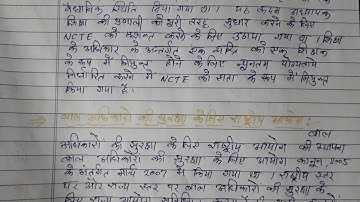 वैधानिक स्थिति दिया गया था। यह कदम अध्यापक
शिक्षा की प्रणाली को पूरी तरह सुधार करने के लिए
NCTE को सशक्त करने के लिए उठाया गया था। शिक्षा
के अधिकार के अन्तर्गत एक व्यक्ति को एक शिक्षक
के रूप में नियुक्त होने के लिए न्यूनतम योग्यताये
निर्धारित करने में NCTE को सत्ता के रूप में नियुक्त
किया गया है।
⇒ बाल अधिकारों की सुरक्षा के लिए राष्ट्रीय आयोग:
बाल
अधिकारों की सुरक्षा के लिए राष्ट्रीय आयोग की स्थापना
बाल अधिकारों की सुरक्षा के लिए आयोग कानून 2005
के अंतर्गत मार्च 2007 में किया गया था। राष्ट्रीय स्तर
पर और राज्य स्तर पर बाल अधिकारों की सुरक्षा के
लिए राज्य आयोग